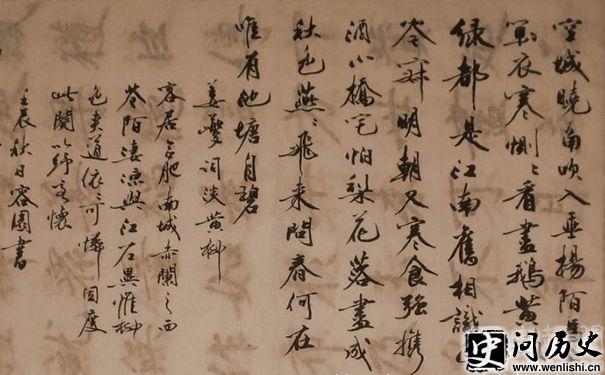 空城曉角吹入垂楊陌
單衣寒惻〻看盡鵝黄
緑都是江南舊相識
岑寂明朝又寒食強携
酒小橋宅怕梨花落盡成
秋色燕〻飛来問春何在
唯有池塘自碧
姜夔詞淡黄柳
客居合肥南城赤闌之西
巷陌凄涼與江左異惟柳
色夾道依〻可憐因度
此闋以紓客懷
壬辰秋日容園書
史 问历史
www.wenlishi.cn